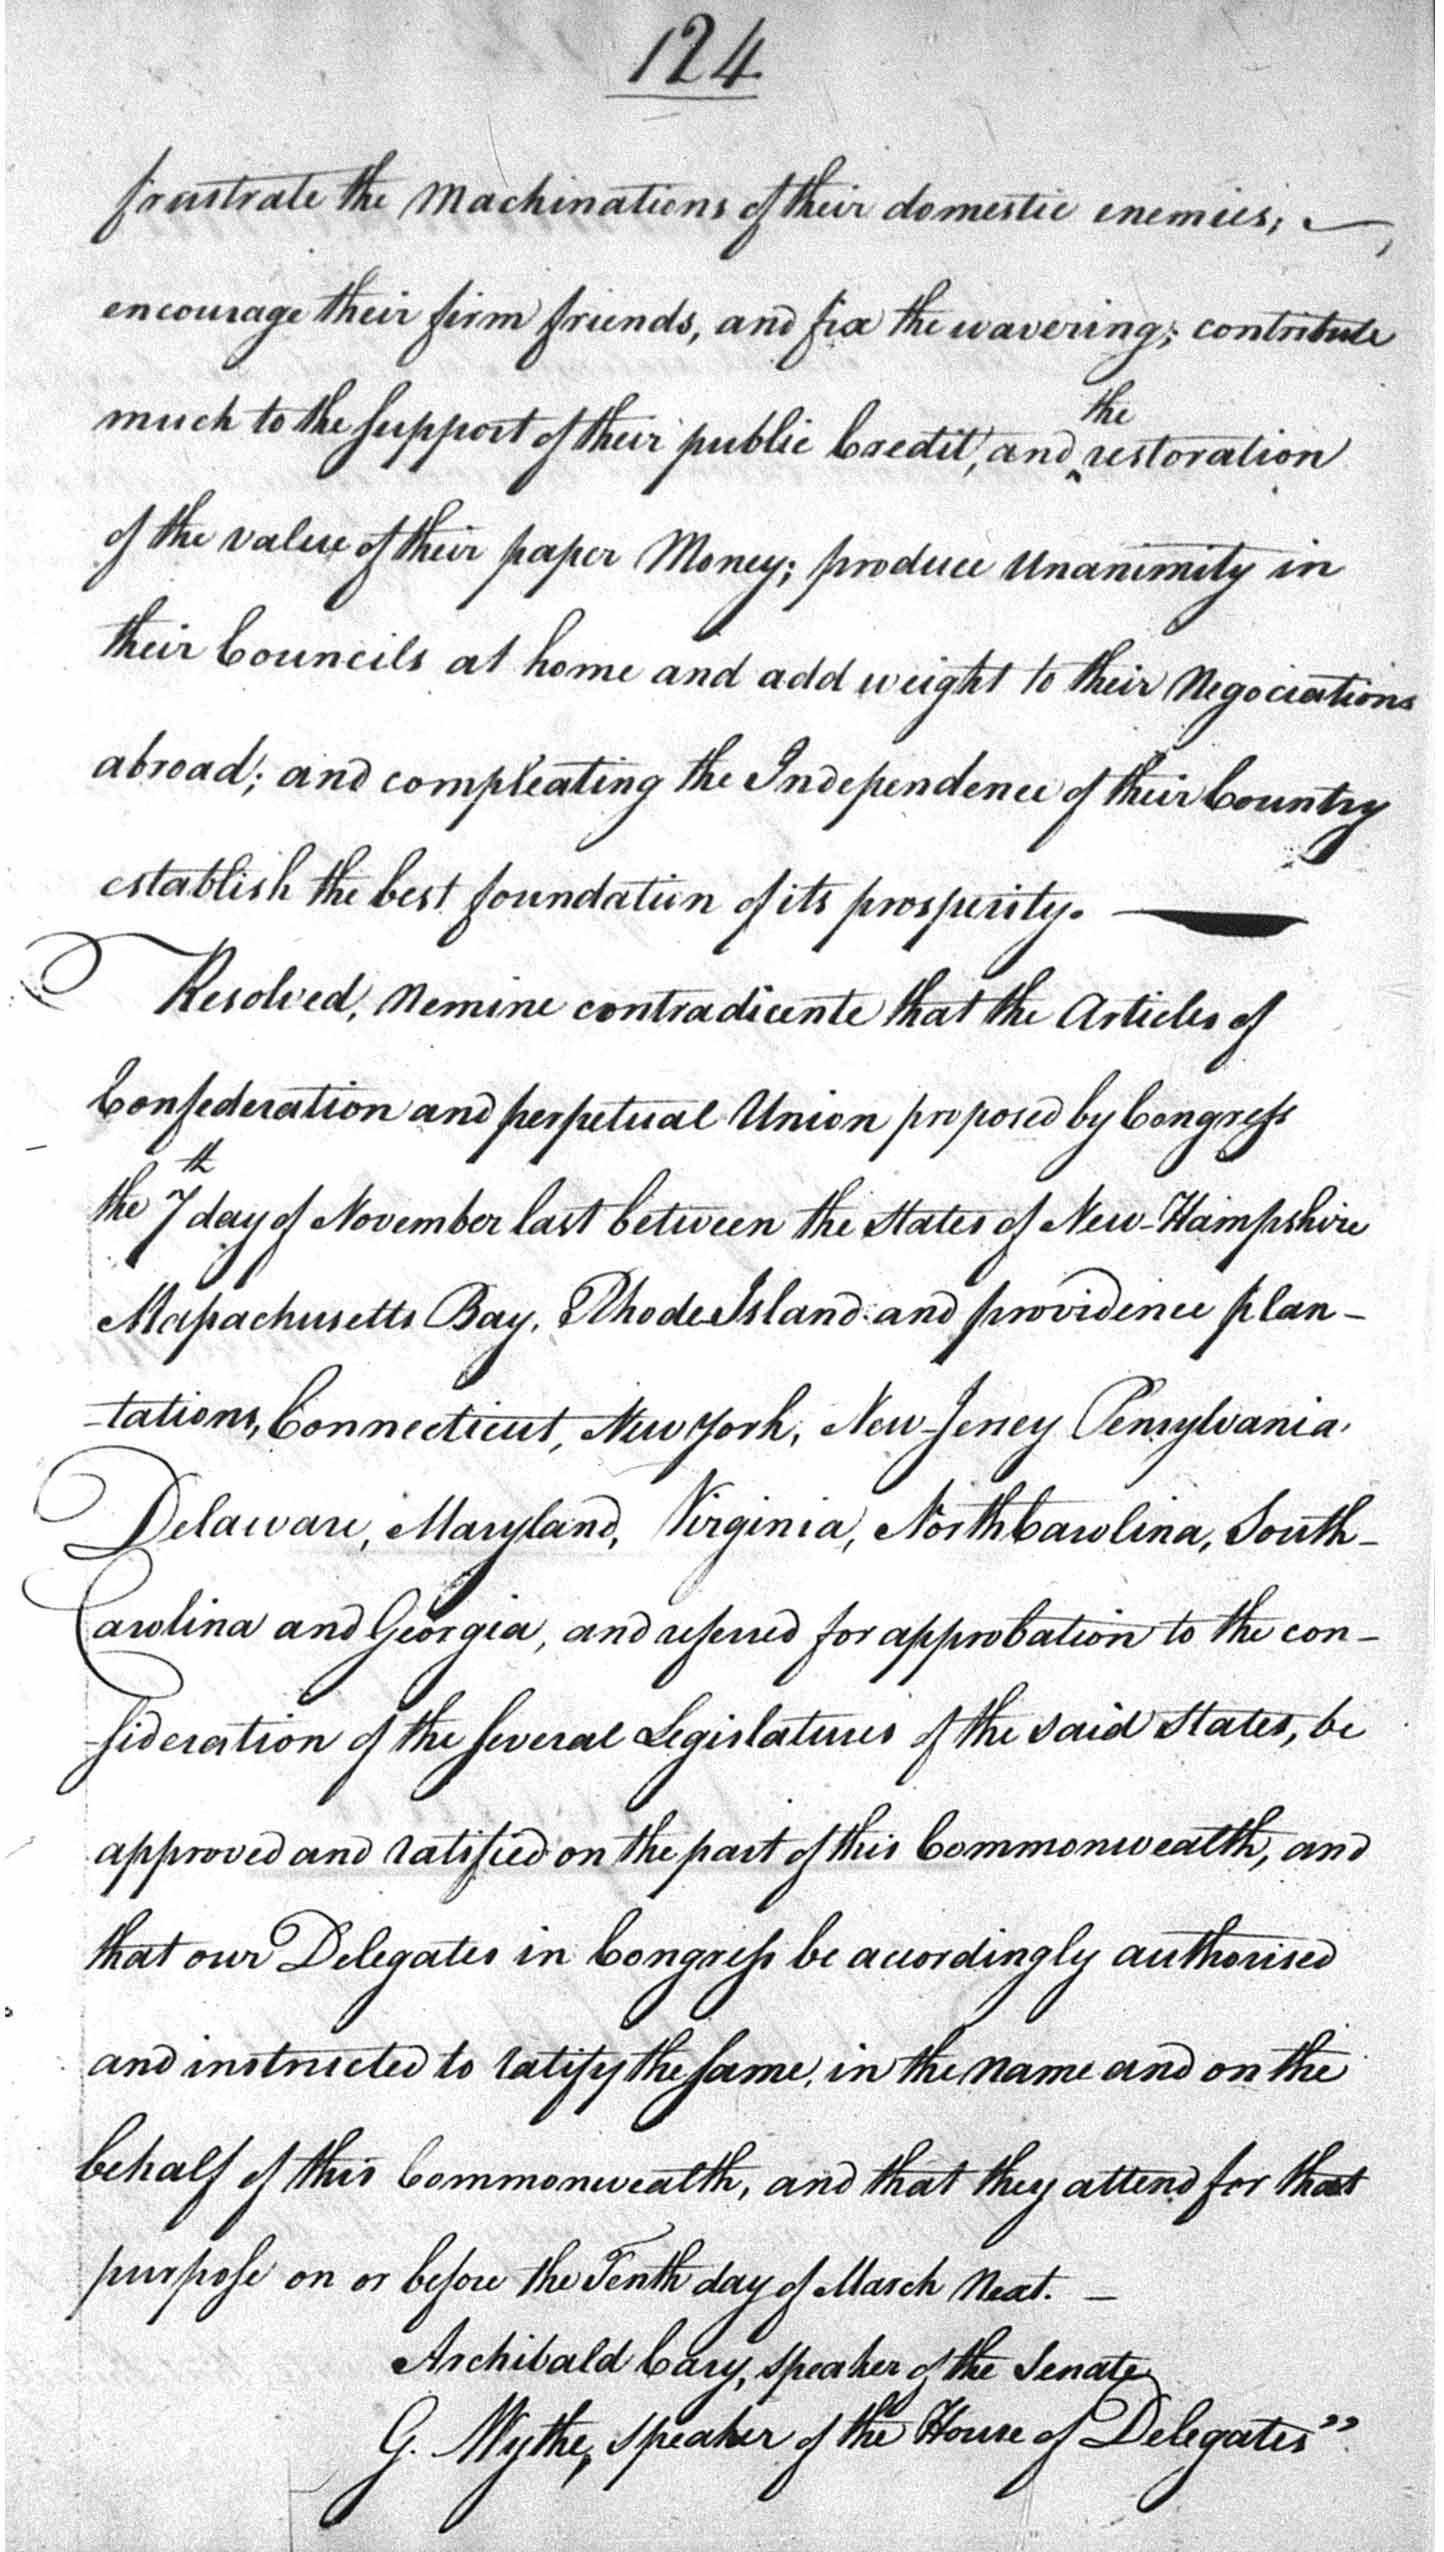 124
frustrate the Machinations of their domestic enemies;
encourage their firm friends, and fix the wavering; contribute
much to the support of their public Credit, and the restoration
of the value of their paper Money; produce Unanimity in
their Councils at home and add weight to their Negociations
abroad; and compleating the Independence of their Country
establish the best foundation of its prosperity.
Resolved, Nemine contradicente that the Articles of
Confederation and perpetual Union proposed by Congress
the 7th day of November last between the States of New-Hampshire
Massachusetts Bay, Rhode Island and providence plan-
-tations, Connecticut, New York, New-Jersey Pensylvania
Delaware, Maryland, Virginia, North Carolina, South-
Carolina and Georgia, and referred for approbation to the con-
-sideration of the several Legislatures of the said States, be
approved and ratified on the part of this Commonwealth, and
that our Delegates in Congress be accordingly authorised
and instructed to ratify the same, in the Name and on the
behalf of this Commonwealth, and that they attend for that
purpose on or before the Tenth day of March Next. —
Archibald Cary, speaker of the Senate
G. Wythe, speaker of the House of Delegates"